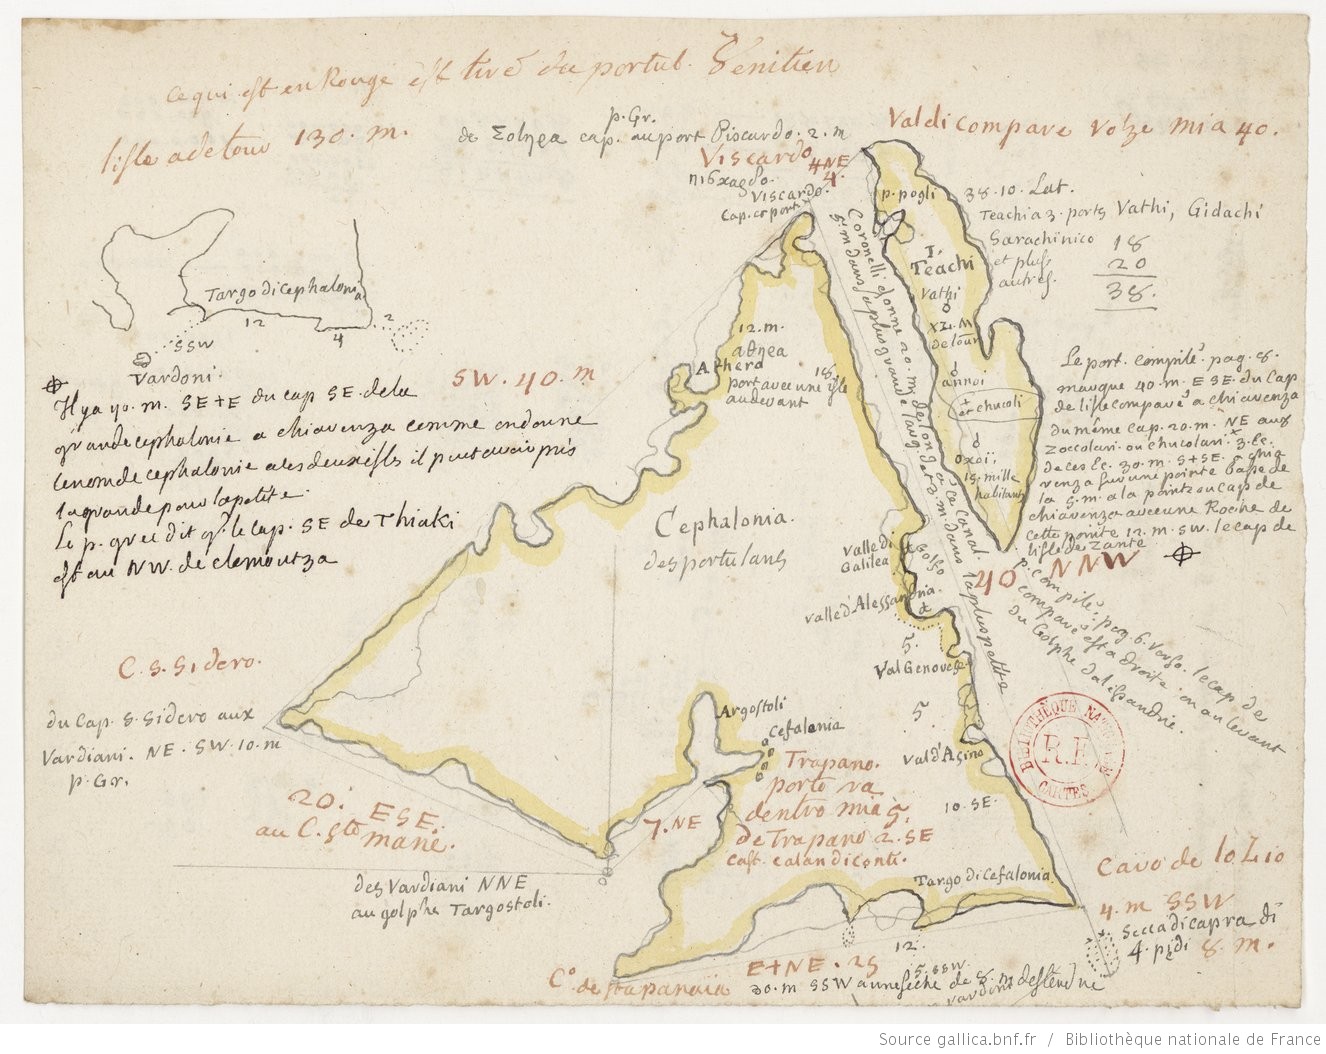 ce qui est en Rouge est tiré du portul. Venitien
l'isle a de tour 130. m.
de Σοληεα cap. au port Piscardo. 2. m
p. Gr.
Valdi compare volze mia 40.
Viscardo
4 NE
4.
Viscardo.
Cap. et port
p. pogli
38. 10. Lat.
Teachi a 3. ports Vathi, Gidachi
Sarachinico
et plus
autres.
18
20
38.
I.
Teachi
Vathi
XL. M
de tour
annoi
et chucoli
oxoi,
15. mille
habitans
Coronelli donne 20. m. de long a ce canal
5. m dans sa plus grande larg. et 3. m. dans la plus petite
Targo di cephalonia
12
4
2
SSW
Vardoni.
Il y a 40. m. SE+E du cap SE. de la
grande cephalonie a chiavenza comme on donne
le nom de cephalonie a les deux isles il peut avoir pris
la grande pour la petite.
Le p. grec dit q. le cap. SE de Thiaki
est au NW. de clemoutza
SW. 40. m
12. m.
αθηεα
Athera
port avec une isle
au devant
18.
Le port. compilé pag. 8.
marque 40. m. ESE. du Cap
de l'isle compare a chiavenza
du même cap. 20. m. NE aux
Zoccolari. ou chucolari.
de ces Ec. 30. m. S+SE. chia
venza sur une pointe basse de
la 5. m. a la pointe ou cap de
chiavenza avec une Roche de
cette pointe 12. m. SW. le cap de
l'isle de Zante
40 NNW
p. compilé pag. 6. Verso. le cap de
compare est a droite. ou au levant
du Golphe d'alessandrie.
Cephalonia.
des portulans
Valle di
Galilea
Golfo
valle d'Alessandria.
5.
Val Genovese
5
Val d'Asino
10. SE.
C. S. Sidero.
du Cap. S. Sidero aux
Vardiani. NE. SW. 10. m
p. Gr.
20. ESE.
au C. Ste marie.
des Vardiani NNE
au golphe Targostoli.
Argostoli
Cefalonia
7. NE
Trapano.
porto va
dentro mia 5.
de Trapano 2. SE
Cast. calandiconti.
BIBLIOTHÈQUE NATIONALE
R. F.
CARTES
Targo di Cefalonia.
Cavo de lo Lio
4. m SSW
Secca di capra di
4. pidi 8. m.
12.
5. SSW.
E+NE. 25
C.º de sta panaia
30. m SSW a une seche de 8. m
Source gallica.bnf.fr / Bibliothèque nationale de France